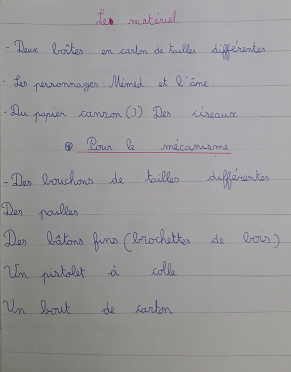 Le matériel
- Deux boîtes en carton de tailles différentes
- Les personnages: Mémed et l'âne.
- Du papier canson (?) Des ciseaux
Pour le mécanisme
- Des bouchons de tailles différentes
Des pailles
Des bâtons fins (brochettes de bois)
Un pistolet à colle
Un bout de carton